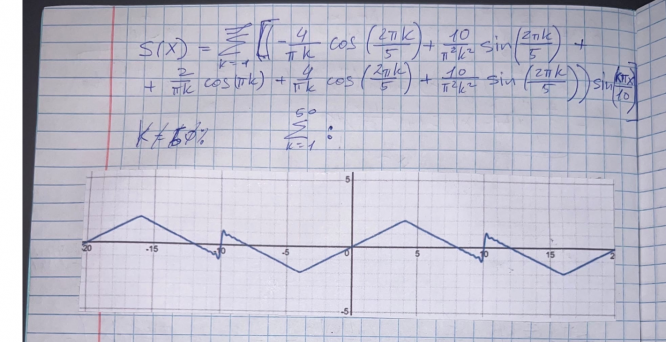 S(x) = ∑ k=1 [(-4/πk cos(2πk/5) + 10/π²k² sin(2πk/5) +
+ 2/πk cos(πk) + 4/πk cos(2πk/5) + 10/π²k² sin(2πk/5)) sin(kπx/10)]
50 ∑ k=1 :
5
-20 -15 -10 -5 0 5 10 15 2
-5